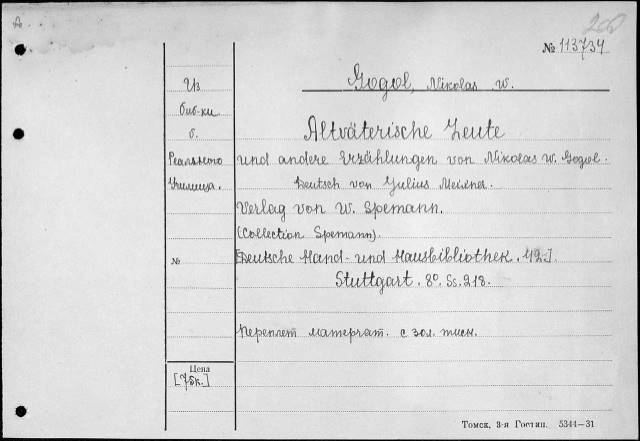 А.
200
№ 113734
Gogol, Nikolas W.
Из
биб-ки
б.
Реального
Училища.
Altväterische Leute
und andere Erzählungen von Nikolas W. Gogol.
Deutsch von Julius Meixner.
Verlag von W. Spemann.
(Collection Spemann).
№
[Deutsche Hand- und Hausbibliothek. 42.]
Stuttgart. 8º. Ss. 218.
Переплет матерчат. с зол. тисн.
Цена
[75к.]
Томск, 3-я Гостип. 5344—31